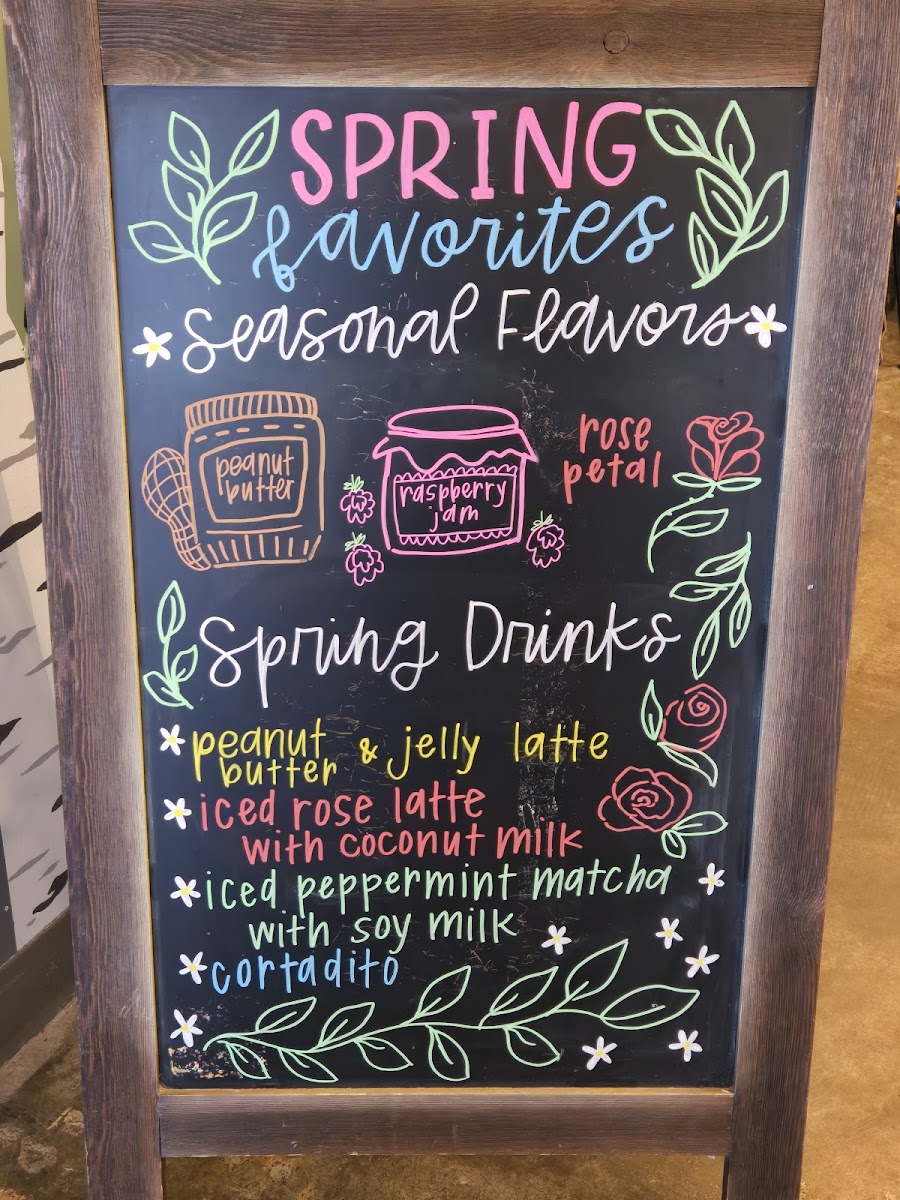 SPRING
favorites
Seasonal Flavors
peanut
butter
raspberry
jam
rose
petal
Spring Drinks
peanut
butter & jelly latte
iced rose latte
with coconut milk
iced peppermint matcha
with soy milk
cortadito